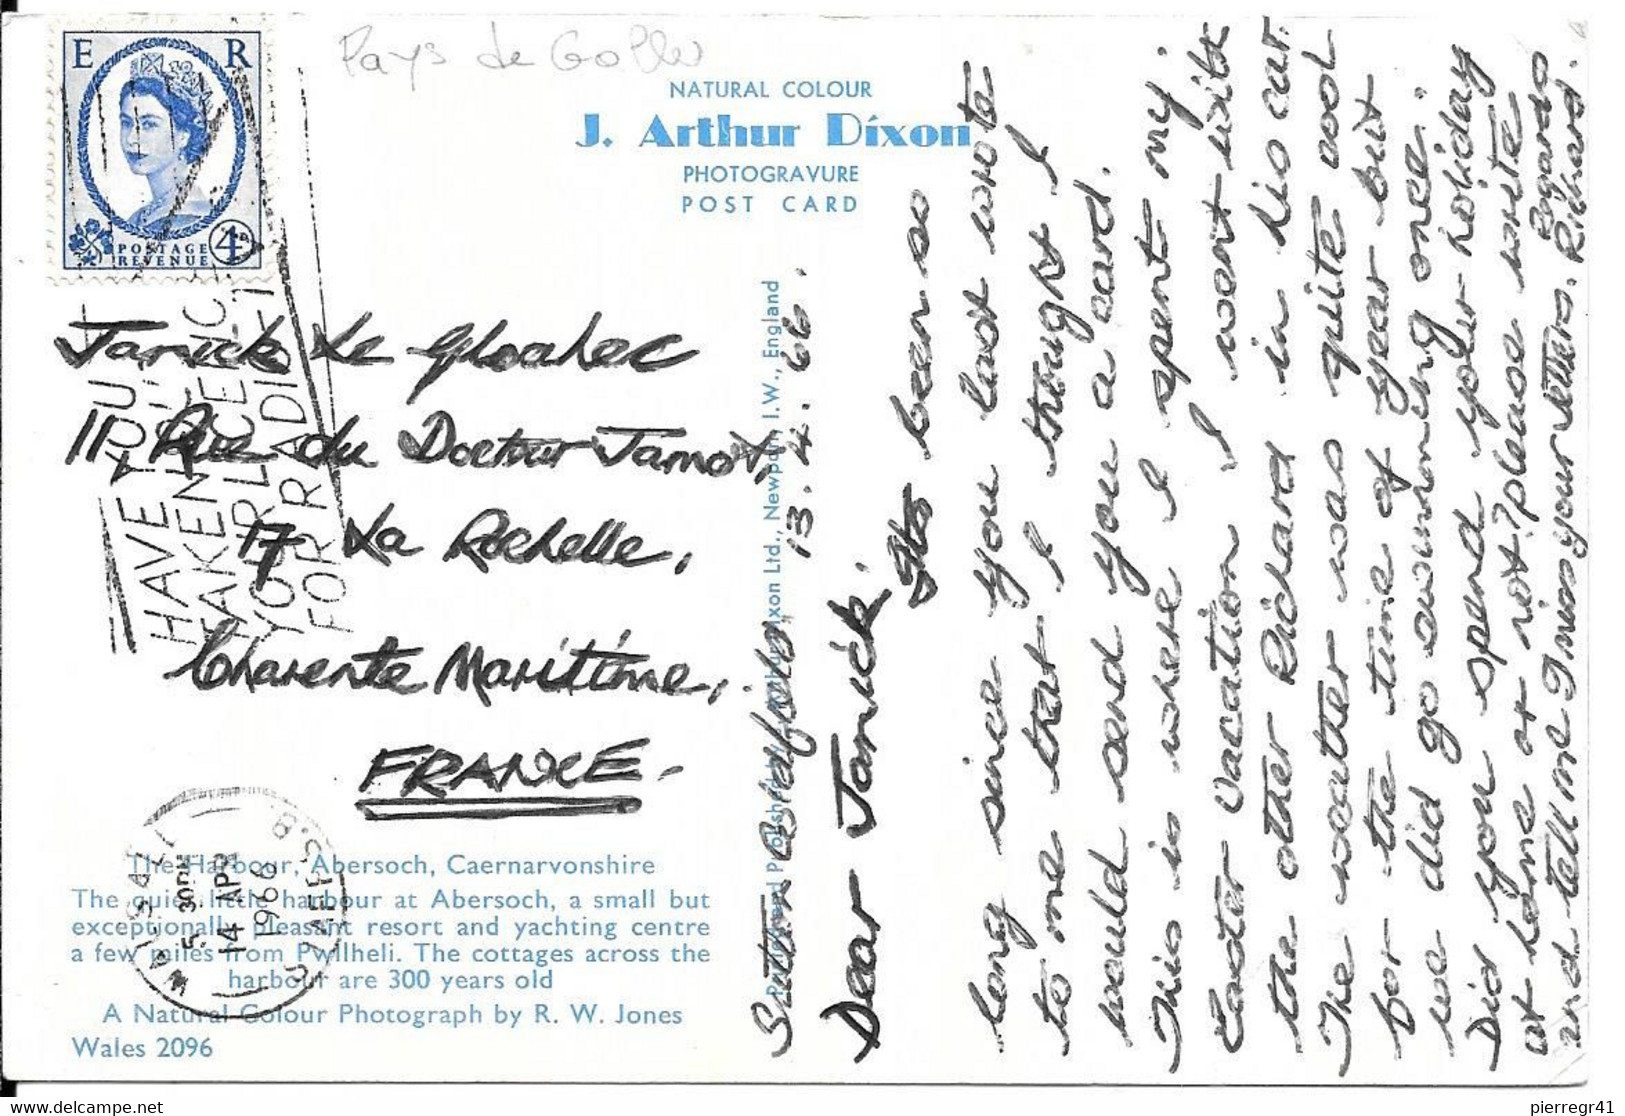 E R
POSTAGE
REVENUE
4D
Pays de Galles
NATURAL COLOUR
J. Arthur Dixon
PHOTOGRAVURE
POST CARD
HAVE YOU
TAKEN
YOUR LICENCE
FOR RADIO
Janick Le Gloahec
11, Rue du Docteur Jamot,
17 La Rochelle,
Charente Maritime,
FRANCE.
WALSALL
5.30PM
14 APR
1966
STAFFS.
The Harbour, Abersoch, Caernarvonshire
The quiet little harbour at Abersoch, a small but
exceptionally pleasant resort and yachting centre
a few miles from Pwllheli. The cottages across the
harbour are 300 years old
A Natural Colour Photograph by R. W. Jones
Wales 2096
Dixon Ltd., Newport I.W., England
Sutton Coldfield 13.4.66.
Dear Janick.
Its been so
long since you last wrote
to me that I thought I
would send you a card.
This is where I spent my
Easter vacation. I went with
the other Richard in his car.
The weather was quite cool
for the time of year but
we did go swimming once.
Did you spend your holiday
at home or not? please write
and tell me I miss your letters.
Regards
Richard.
pierregr41